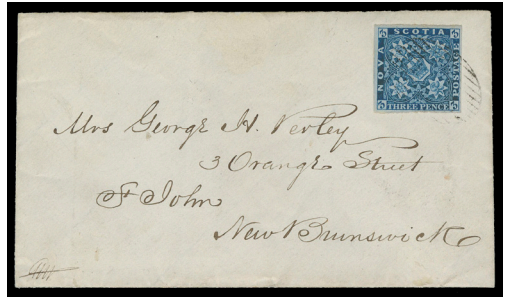 NOVA SCOTIA POSTAGE
THREE PENCE
Mrs George H. Perley
3 Orange Street
St John
New Brunswick